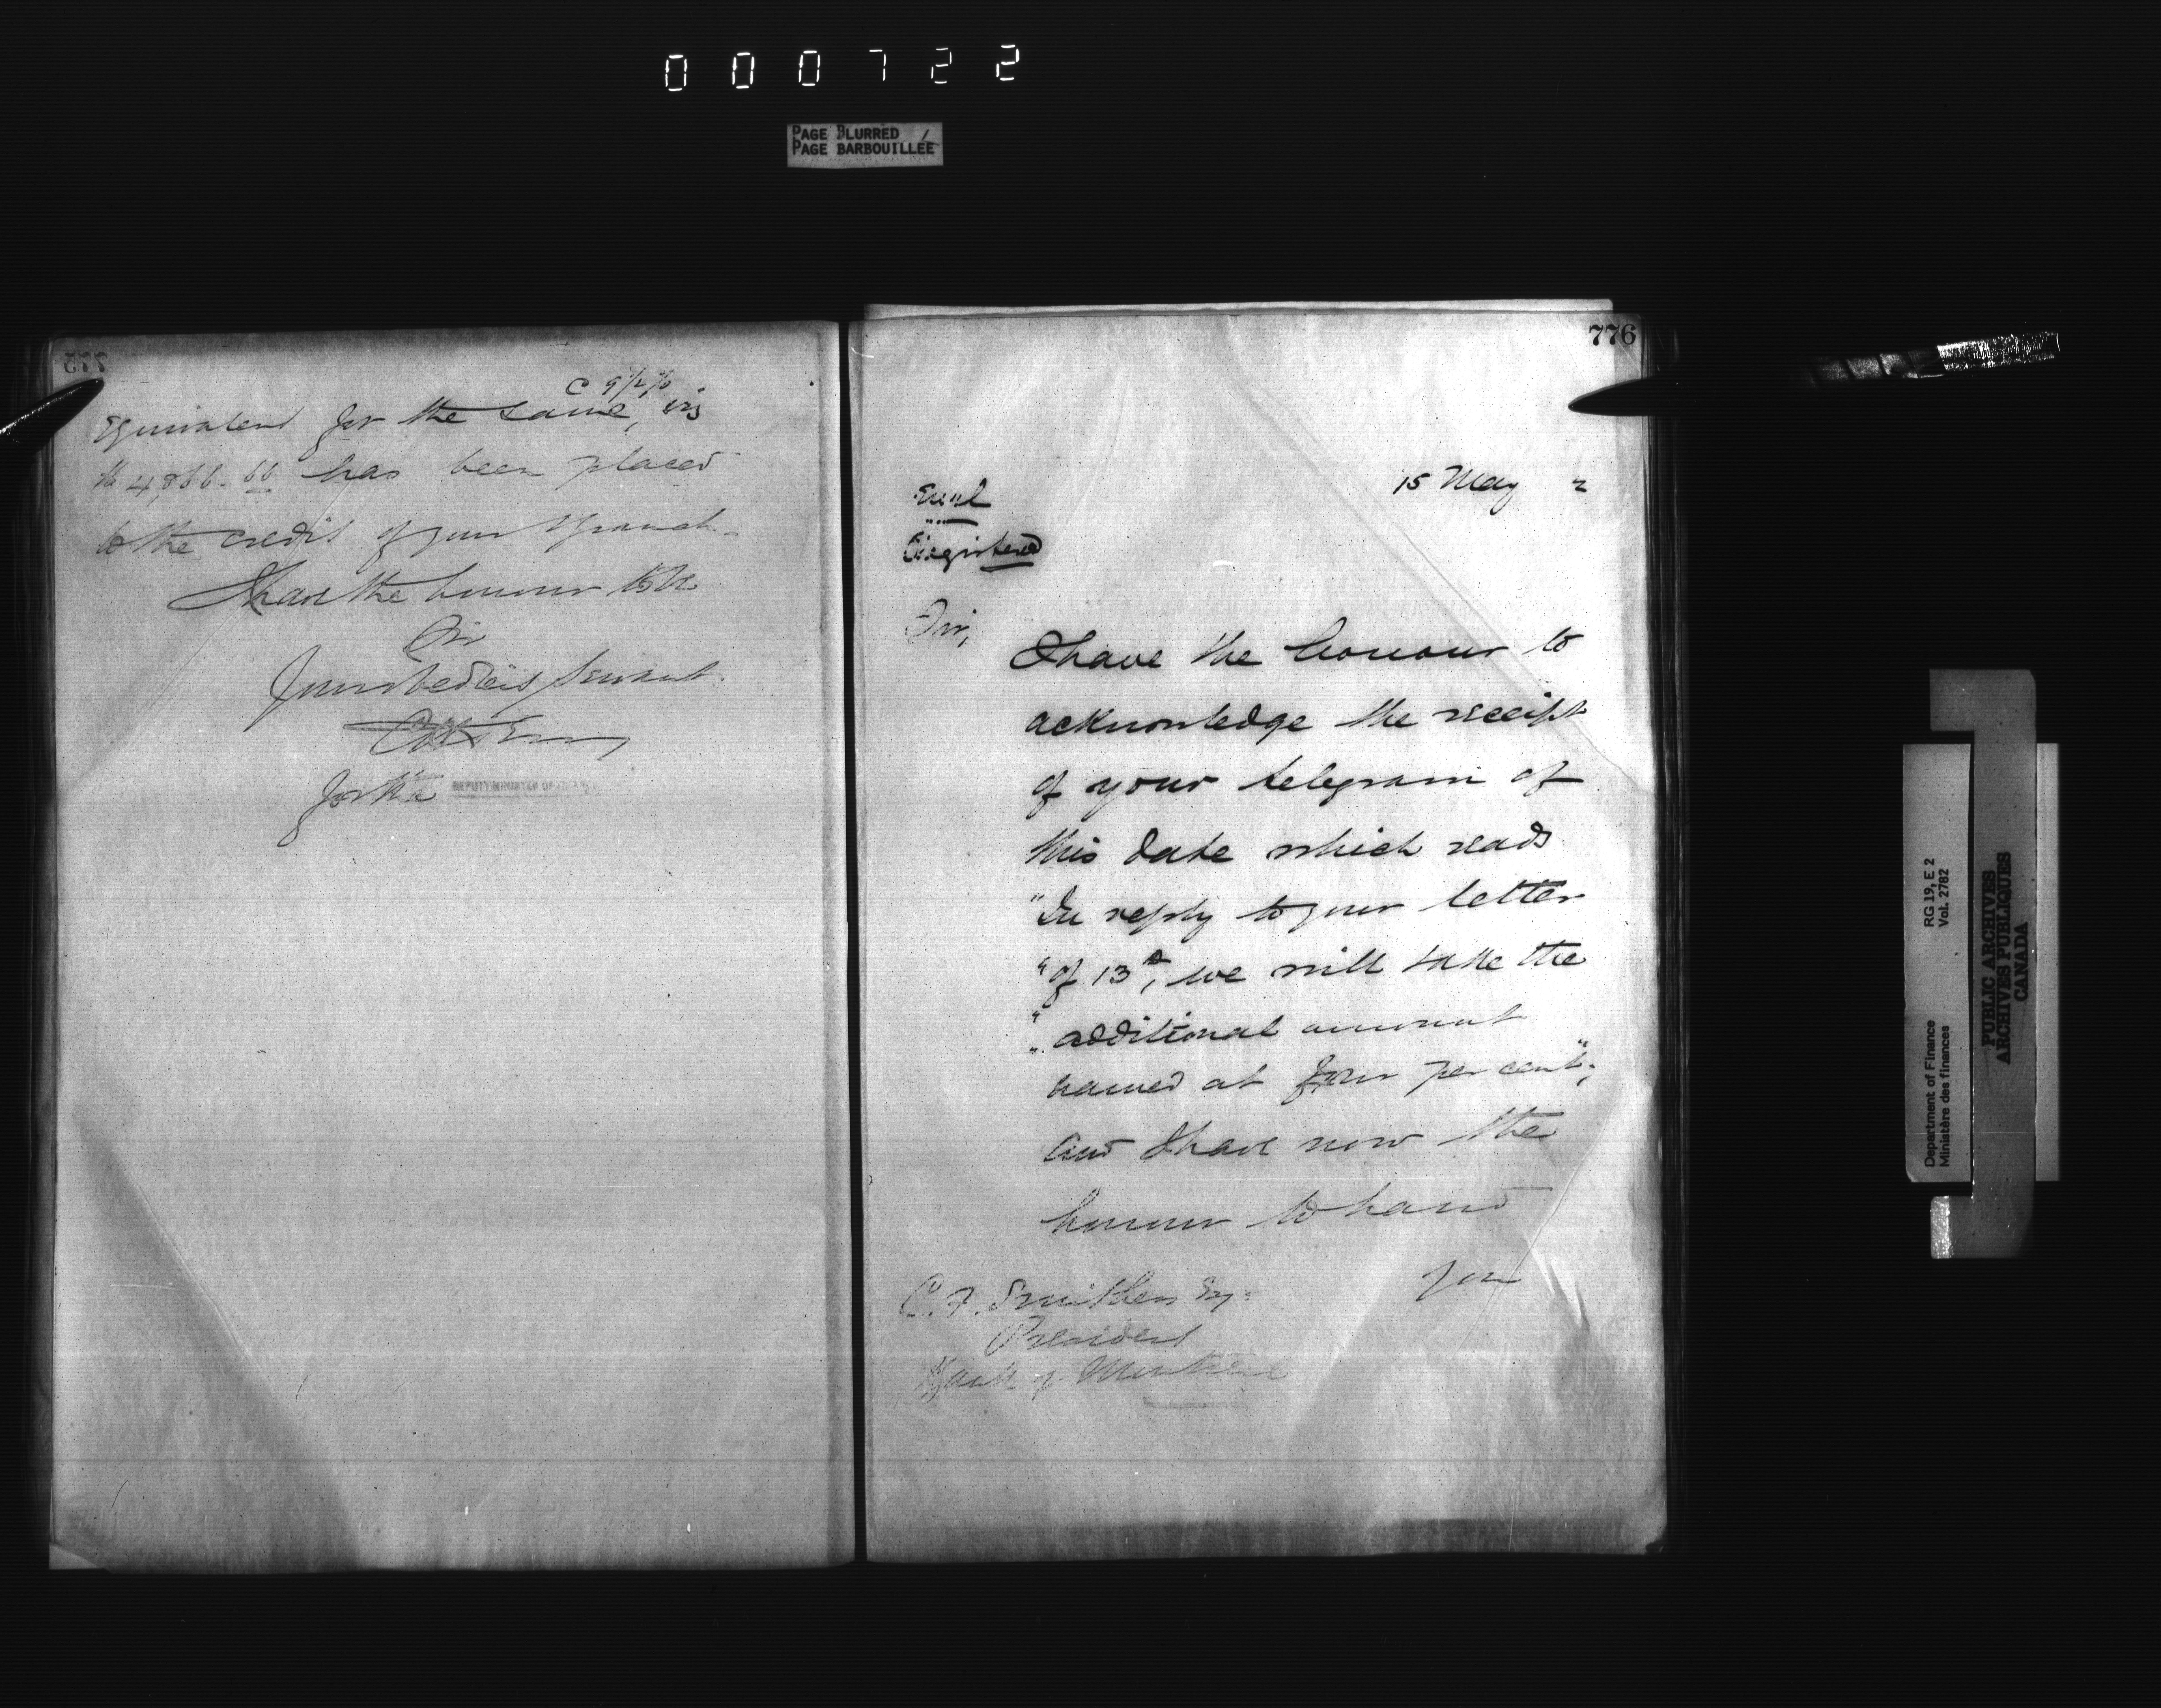 000722
PAGE BLURRED
PAGE BARBOUILLÉE
775
C 9 1/2 %
Equivalent for the same, viz
$4,866.66 has been placed
to the credit of your Branch
I have the honour to be
Sir
Your obedient servant
for the DEPUTY MINISTER OF FINANCE
776
15 May 2
Encl
Registered
Sir,
I have the honour to
acknowledge the receipt
of your telegram of
this date which reads
"In reply to your letter
"of 13th, we will take the
"additional amount
named at four per cent";
and I have now the
honour to hand
you
C. F. Smithers Esq.
President
Bank of Montreal
Department of Finance RG 19, E 2
Ministère des finances Vol. 2782
PUBLIC ARCHIVES
ARCHIVES PUBLIQUES
CANADA